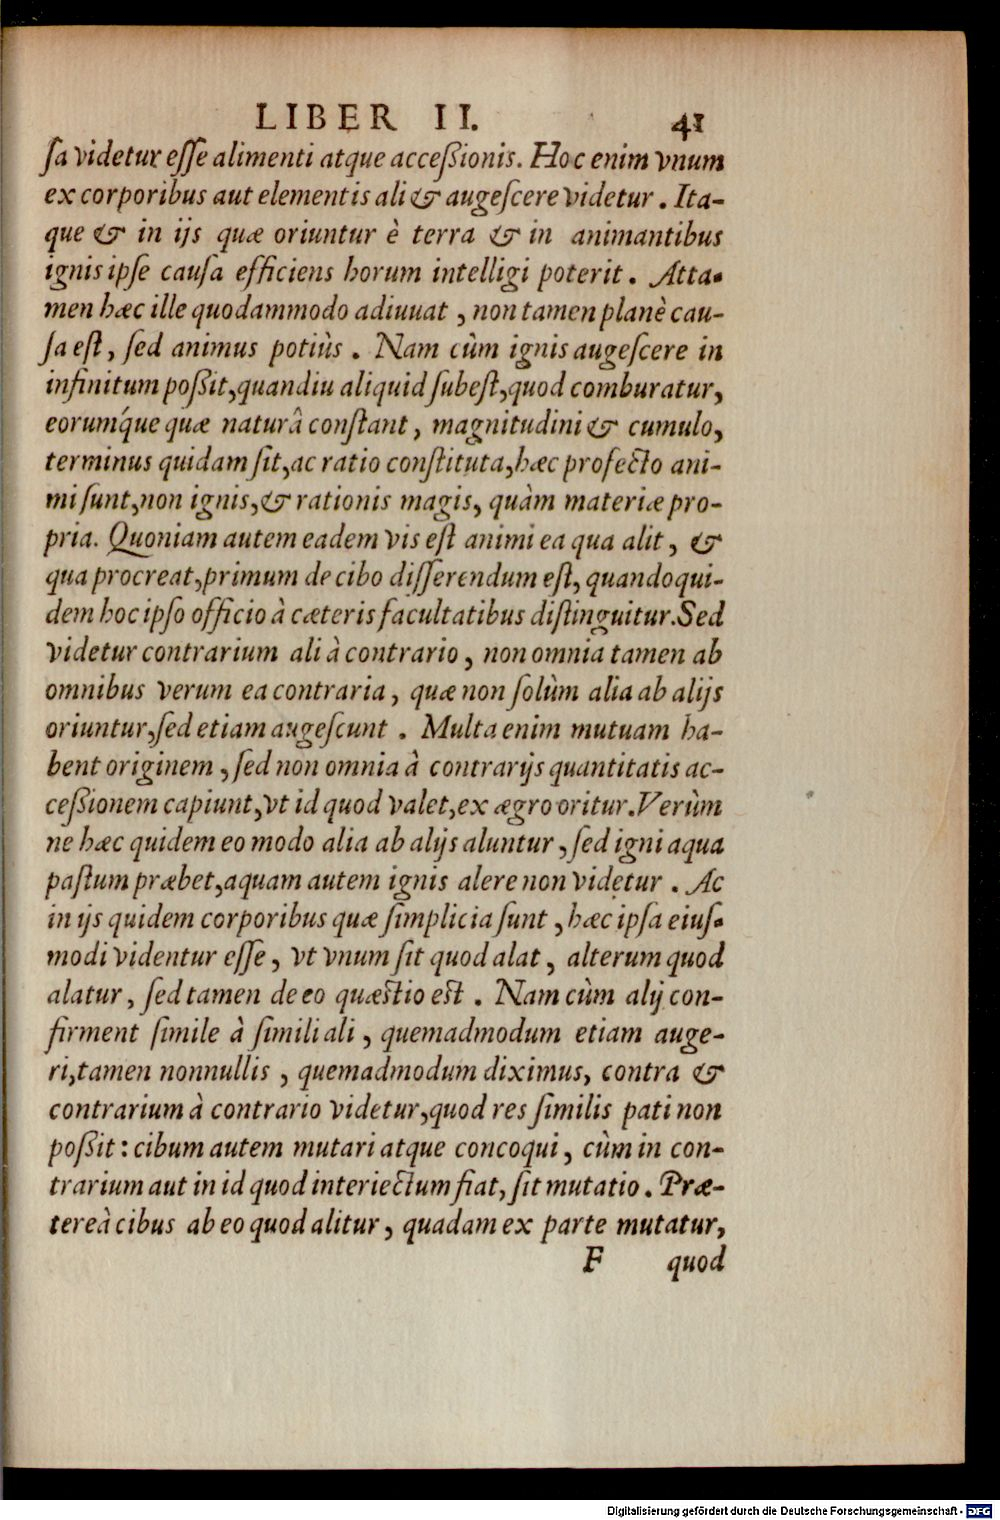 LIBER II. 41
ſa videtur eſſe alimenti atque acceßionis. Hoc enim vnum
ex corporibus aut elementis ali & augeſcere videtur. Ita-
que & in ijs quæ oriuntur è terra & in animantibus
ignis ipſe cauſa efficiens horum intelligi poterit. Atta-
men hæc ille quodammodo adiuuat, non tamen planè cau-
ſa eſt, ſed animus potiùs. Nam cùm ignis augeſcere in
infinitum poßit, quandiu aliquid ſubeſt, quod comburatur,
eorumq́ue quæ naturâ conſtant, magnitudini & cumulo,
terminus quidam ſit, ac ratio conſtituta, hæc profecto ani-
mi ſunt, non ignis, & rationis magis, quàm materiæ pro-
pria. Quoniam autem eadem vis eſt animi ea qua alit, &
qua procreat, primum de cibo diſſerendum eſt, quandoqui-
dem hoc ipſo officio à cæteris facultatibus diſtinguitur. Sed
videtur contrarium ali à contrario, non omnia tamen ab
omnibus verum ea contraria, quæ non ſolùm alia ab alijs
oriuntur, ſed etiam augeſcunt. Multa enim mutuam ha-
bent originem, ſed non omnia à contrarijs quantitatis ac-
ceßionem capiunt, vt id quod valet, ex ægro oritur. Verùm
ne hæc quidem eo modo alia ab alijs aluntur, ſed igni aqua
paſtum præbet, aquam autem ignis alere non videtur. Ac
in ijs quidem corporibus quæ ſimplicia ſunt, hæc ipſa eiuſ-
modi videntur eſſe, vt vnum ſit quod alat, alterum quod
alatur, ſed tamen de eo quæstio est. Nam cùm alij con-
firment ſimile à ſimili ali, quemadmodum etiam auge-
ri, tamen nonnullis, quemadmodum diximus, contra &
contrarium à contrario videtur, quod res ſimilis pati non
poßit: cibum autem mutari atque concoqui, cùm in con-
trarium aut in id quod interiectum fiat, ſit mutatio. Præ-
tereà cibus ab eo quod alitur, quadam ex parte mutatur,
F quod
Digitalisierung gefördert durch die Deutsche Forschungsgemeinschaft - DFG